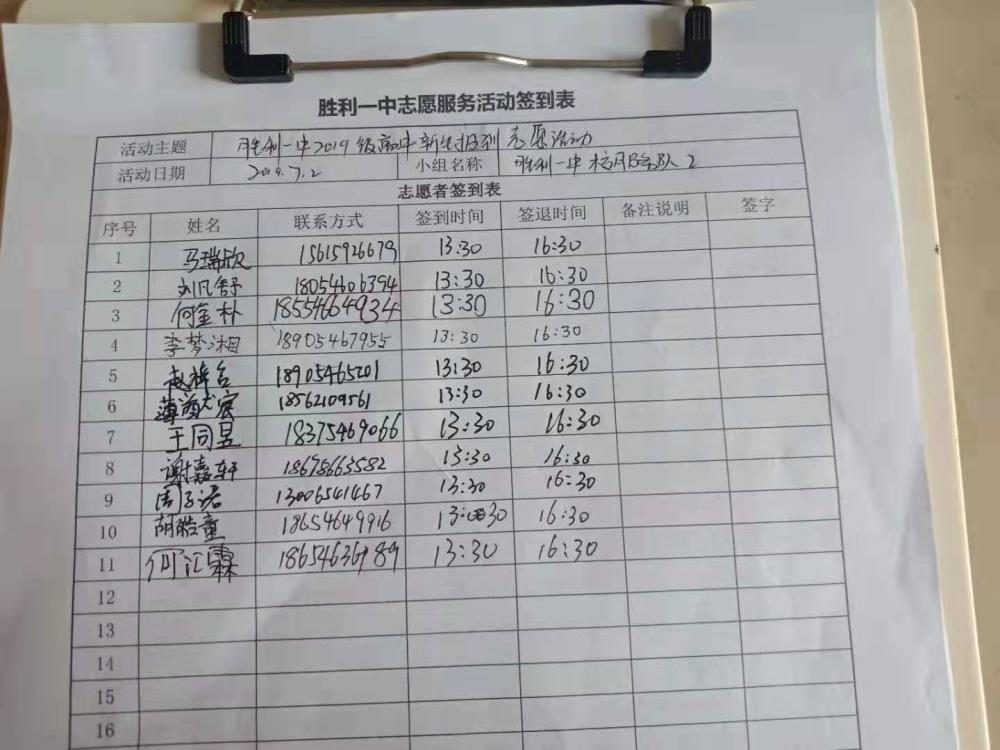 胜利一中志愿服务活动签到表
活动主题 胜利一中2019级高中新生报到志愿活动
活动日期 2019.7.2 小组名称 胜利一中 2
志愿者签到表
序号 姓名 联系方式 签到时间 签退时间 备注说明 签字
1 马瑞欣 15615926679 13:30 16:30
2 刘凡舒 18054606394 13:30 16:30
3 何金朴 18554664934 13:30 16:30
4 李梦湘 18905467955 13:30 16:30
5 赵梓含 18905465201 13:30 16:30
6 薄 宸 18562109561 13:30 16:30
7 王同昱 18375469066 13:30 16:30
8 谢嘉轩 18678663582 13:30 16:30
9 周子语 13006541467 13:30 16:30
10 胡皓童 18654649916 13:30 16:30
11 何汇霖 18654636989 13:30 16:30
12
13
14
15
16